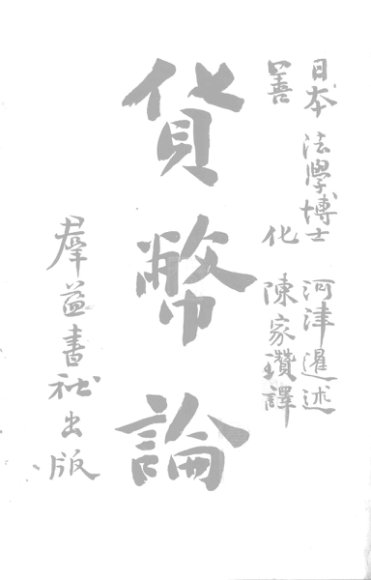 日本法學博士 河津暹述
善化 陳家瓚譯
貨幣論
羣益書社出版